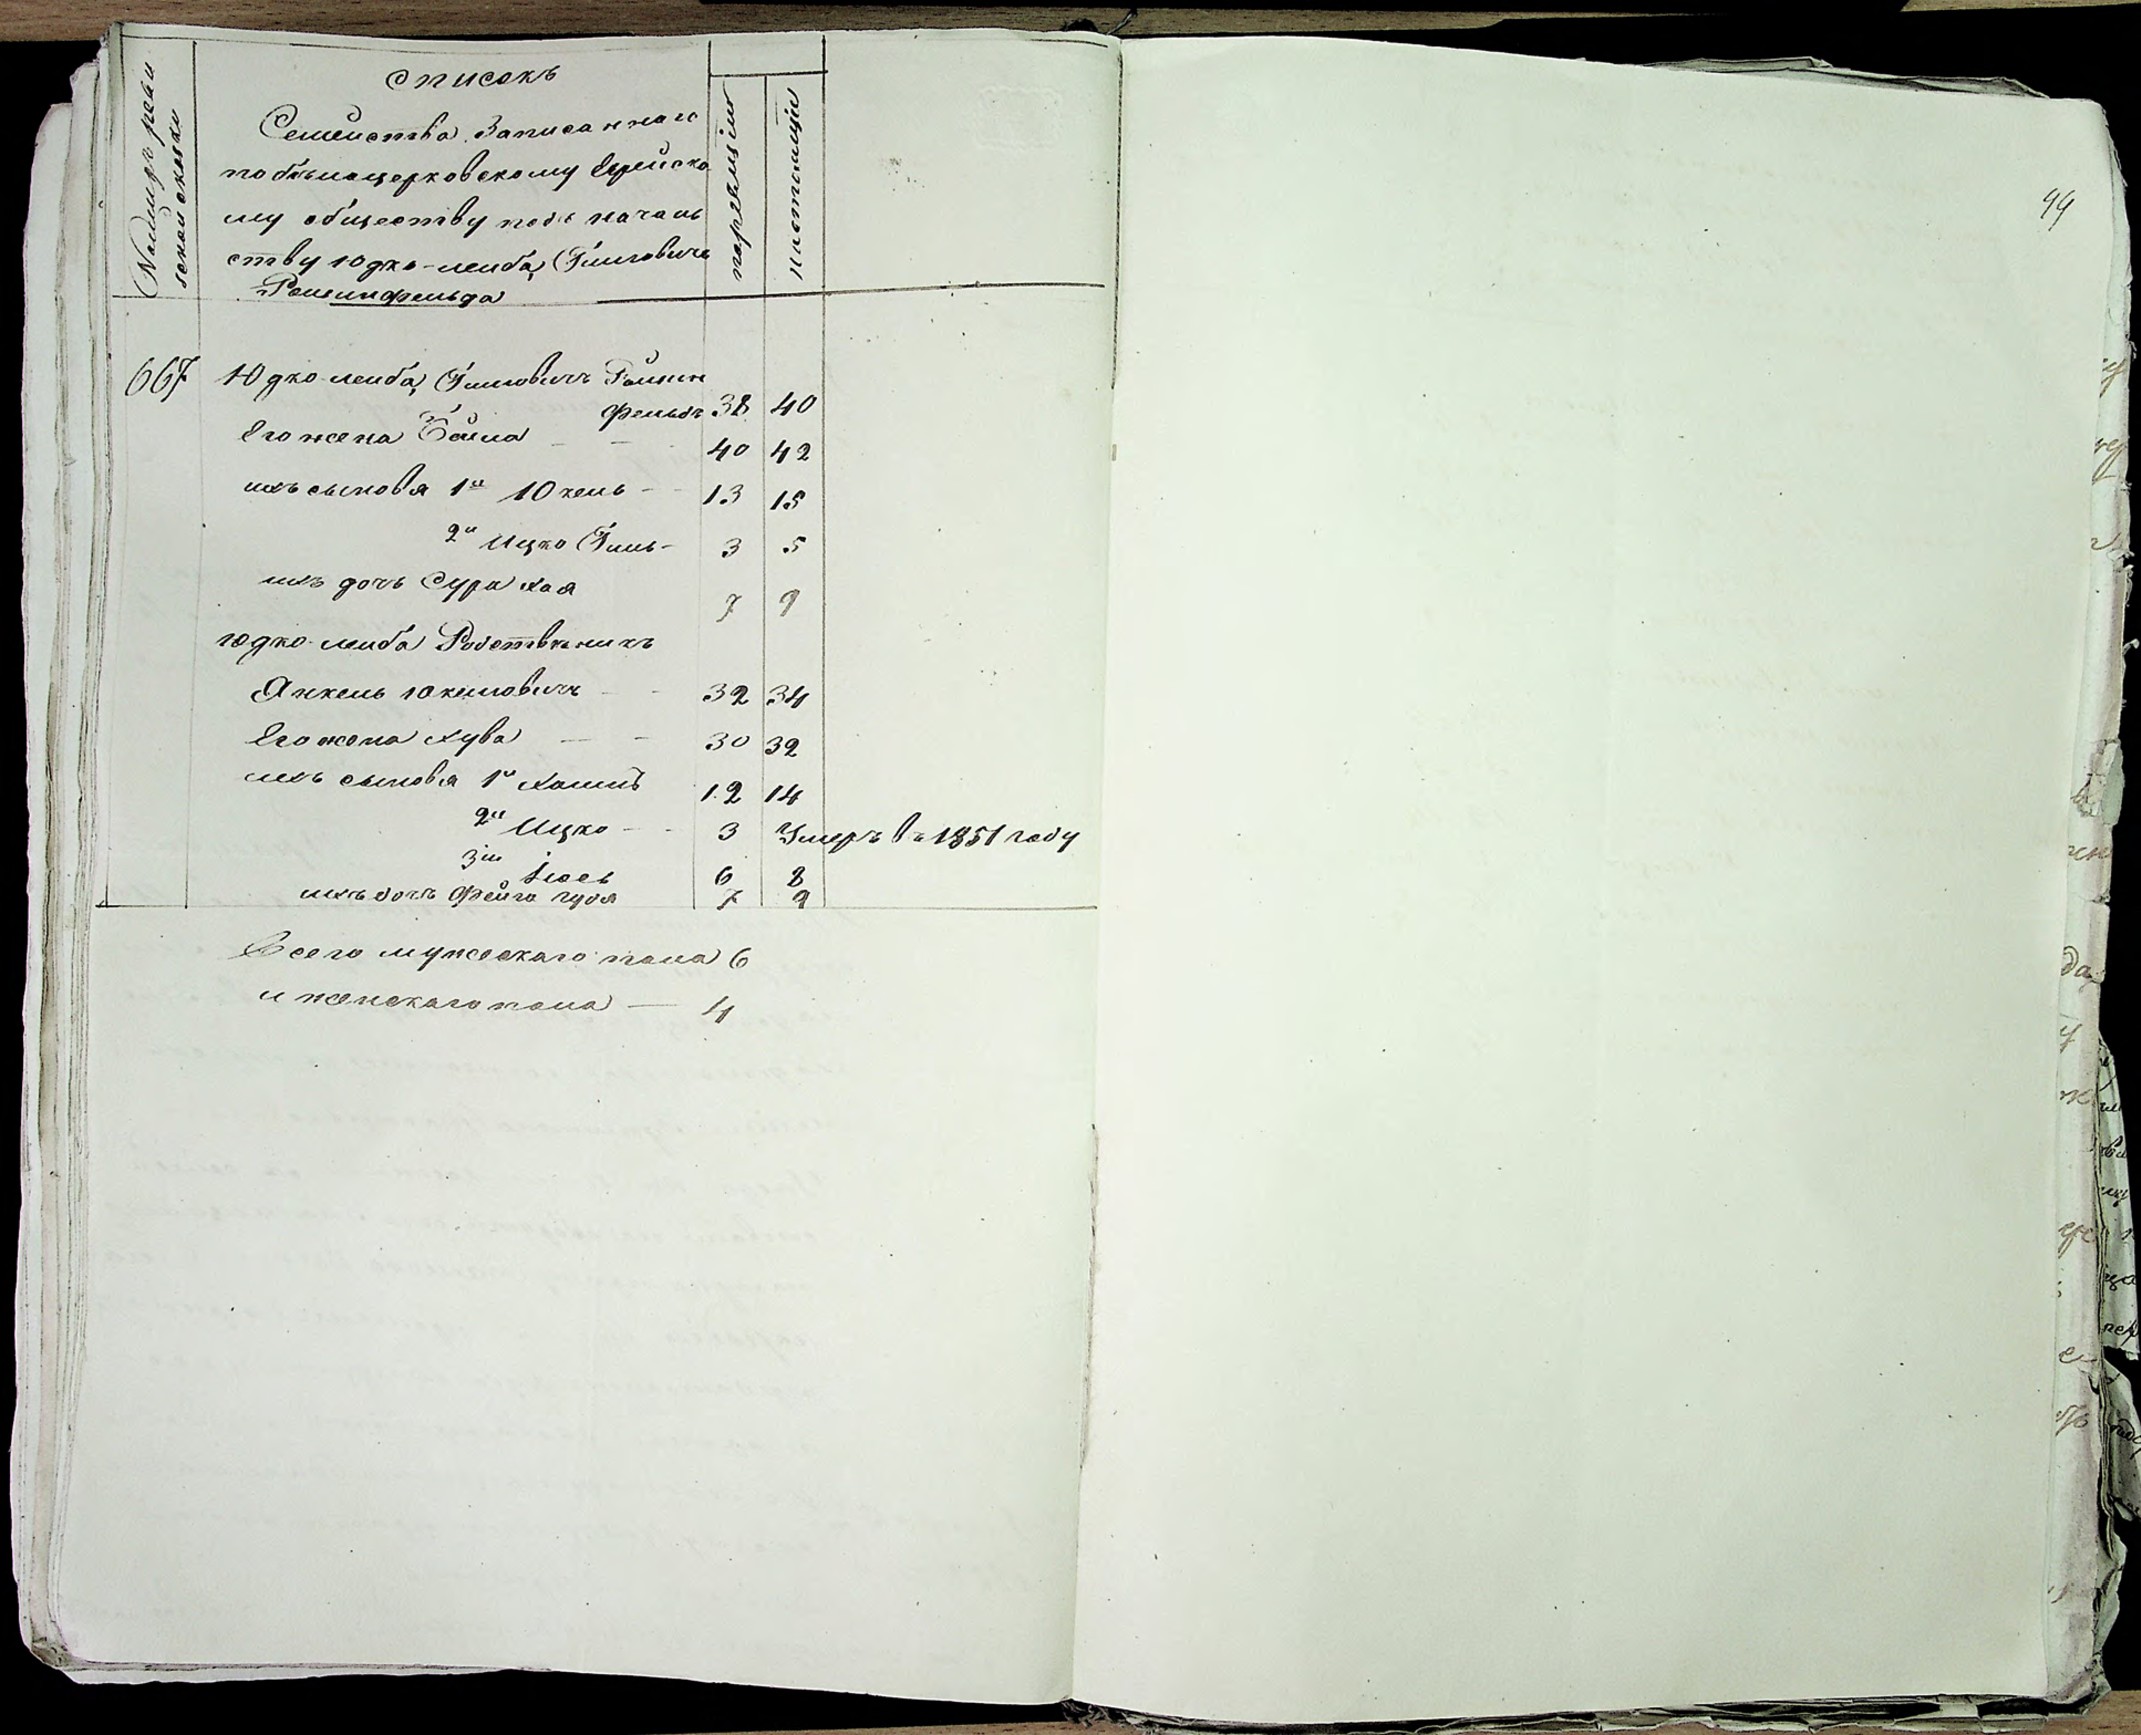 Номеръ реви
зской сказки
Списокъ
Семейства Записаннаго
по бѣлоцерковскому Еврейско
му обществу подъ началь
ству Юдко-лейба Гиловича
Роизинфельда
по ревизіи
настоящіи
667 Юдко лейба Гиловичъ Роизин
фельдъ 38 40
Его жена Бейла 40 42
ихъ сыновя 1й Юкель 13 15
2й Ицко Гиль 3 5
ихъ дочь Сура Хая 7 9
Юдко-лейба Родственникъ
Янкель Юкелювичъ 32 34
Его жена Хува 30 32
ихъ сыновя 1й Хаимъ 12 14
2й Ицко 3 Умеръ въ 1851 году
3й Іось 6 8
ихъ дочь Фейга 7 9
Всего мужескаго пола 6
и женскаго пола — 4
44